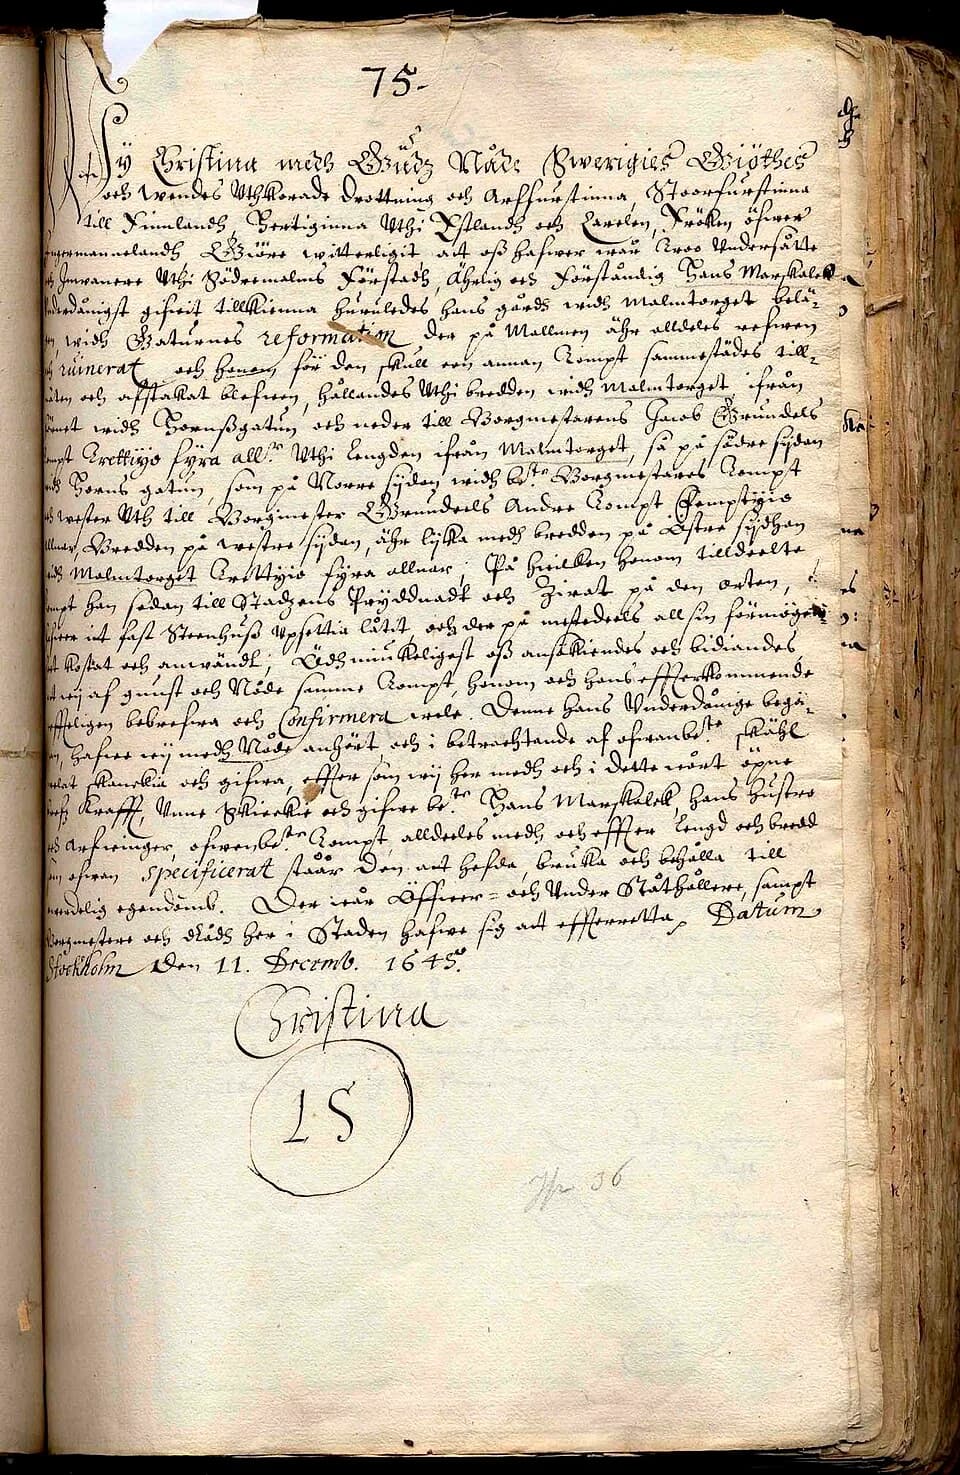 75.
Wÿ Christina medh Gudz Nåde Swerigies Giöthes
och Wendes Uthkorade Drottning och Arffurstinna, Stoorfurstinna
till Finnlandh, Hertiginna Uthi Estlandh och Carelen, Fröken öfwer
Ingermannelandh Giöre witterligit, att oß hafwer wår Troo Undersåtte
och Inwånere Uthi Södremalms Förstadh, Ährlig och Förståndig Hans Marskalck
Underdånigst gifwit tillkienna huruledes hans gårdh widh Malmtorget belä-
gen, widh Gaturnes reformation der på Mallmen ähr alldeles refwen
och ruinerat, och honom för den skull een annan Tompt sammestädes till-
låten och affstakat blefwen, hållandes Uthi bredden widh Malmtorget ifrån
hörnet widh Hornßgatun och neder till Borgmesterens Jacob Grundels
Tompt Trettijo fyra alln:r Uthi Lengden ifrån Malmtorget, så på södre sydan
widh Horns gatun, som på Norre sydan widh be:te Borgmestares Tompt
och wester Uth till Borgmester Grundeels Andre Tompt Femptijo
allnar, Bredden på westre sydan, ähr lijka medh bredden på Östre sydhan
widh Malmtorget Trettijo fyra allnar; På hwilken honom tilldeelte
Tompt han sedan till Stadzens Pryddnadt och Zirat på den orten,
hafwer itt fast Steenhuß Upsettia låtit, och der på mestedeels all sin förmögen
kostat och anwändt; Ödhmiukeligest oß ansökiendes och bidiandes,
wij af gunst och Nåde samme Tompt, honom och hans effterkommende
bebrefwa och Confirmera wele. Denne hans Underdånige begä-
ran, hafwe wij medh Nåde anhört och i betrachtande af ofwanbe:te skähl
skänckia och gifwa, effter som wij her medh och i dette wårt öpne
Brefz Krafft, Unne Skienckie och gifwe be:te Hans Marskalck, hans Hustro
och Arfwinger, ofwanbe:te Tompt, alldeeles medh och effter Lengd och bredd
som ofwan specificerat ståår Den att hefda, bruka och behålla till
egendomb. Der wår Öffwer- och Under Ståthållere, sampt
Borgmestere och Rådh her i Staden hafwe sig att effterretta. Datum
Stockholm Den 11. Decemb. 1645.
Christina
L S
Jfr 36